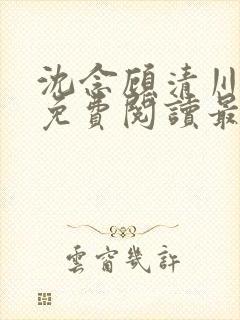 沈念顧清川
免費閱讀最
雲窗幾許